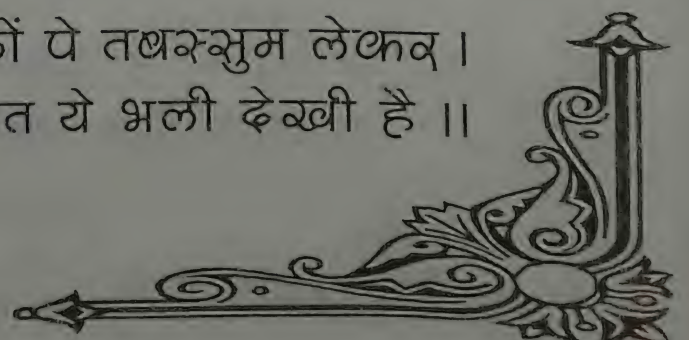 पे तबस्सुम लेकर ।
ये भली देखी है ॥